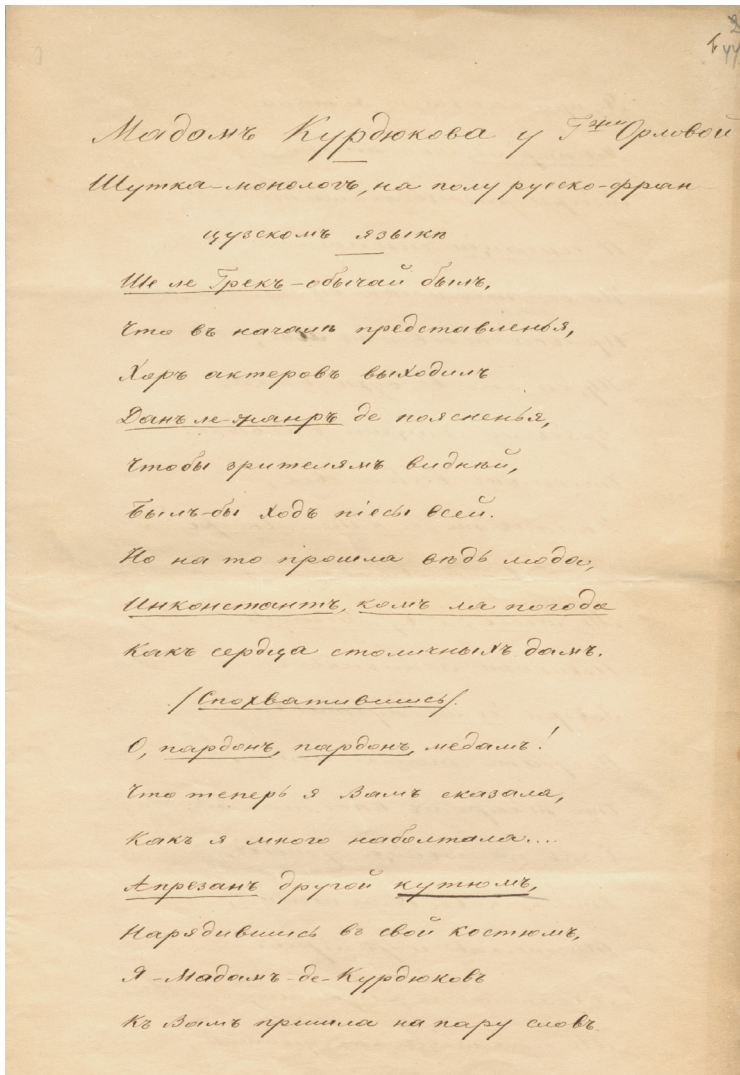 2
44
Мадамъ Курдюкова у Гжи Орловой
Шутка-монологъ, на полу русско-фран
цузскомъ языкѣ
Ше ле Грекъ-обычай былъ,
Что въ началѣ представленья,
Хоръ актеровъ выходилъ
Данъ ле-жанръ де поясненья,
Чтобы зрителямъ виднѣй,
Былъ-бы ходъ піесы всей.
Но на то прошла вѣдь мода,
Инконстантъ, комъ ла погода
Какъ сердца столичныхъ дамъ.
/Спохватившись/.
О, пардонъ, пардонъ, медамъ!
Что теперь я Вамъ сказала,
Какъ я много наболтала...
Апрезан другой кутюмъ,
Нарядившись въ свой костюмъ,
Я-Мадамъ-де-Курдюковъ
Къ Вамъ пришла на пару словъ.